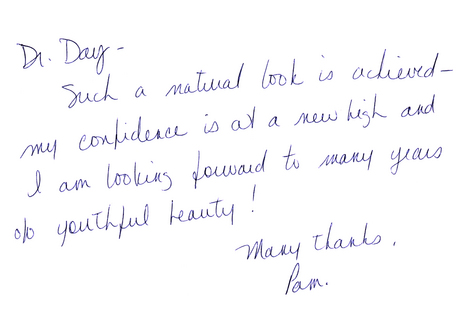 Dr. Day -
Such a natural look is achieved -
my confidence is at a new high and
I am looking forward to many years
of youthful beauty!
Many thanks,
Pam.